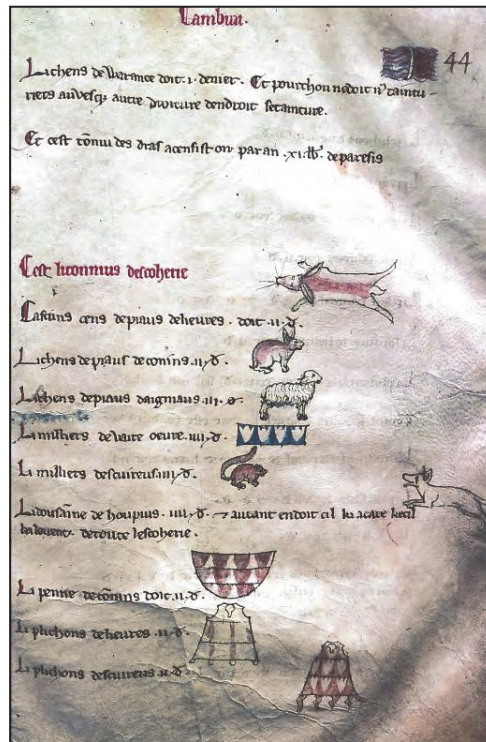 Cambua.
44
Li chens de Warance doit .i. denier. Et pour chou ne doit nus taintu-
riers auvesques autre droiture dendroit se tainture.
Et cest tonniu des dras acensist on par an .xl. lb. de paresis
Cest li tonnius descoherie
Cascuns cens de piaus de lievres . doit .ii. d.
Li chens de piaus de conins .ii. d.
Li chens de piaus daigniaus .iii. d.
Li milliers de vaire oevre .iiii. d.
Li milliers descuireus .iiii. d.
Li dousaine de houpius .iiii. d. autant en doit cil ki acate ke cil
ki le vent de toute lescoherie .
Li penne de conins doit .ii. d.
Li plichons de lievres .ii. d.
Li plichons descuireus .ii. d.